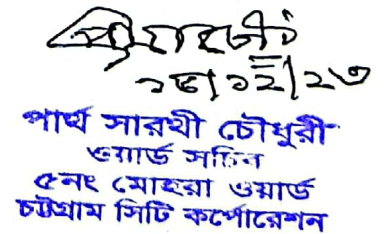 ১৮/১২/২৩
পার্থ সারথী চৌধুরী
ওয়ার্ড সচিব
৫নং মোহরা ওয়ার্ড
চট্টগ্রাম সিটি কর্পোরেশন